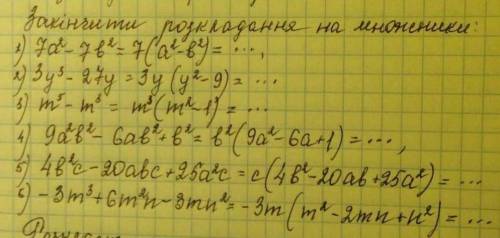 Закінчити розкладання на множники:
1) 7a² - 7b² = 7(a² - b²) = ...,
2) 3y³ - 27y = 3y(y² - 9) = ...
3) m⁵ - m³ = m³(m² - 1) = ...
4) 9a²b² - 6ab² + b² = b²(9a² - 6a + 1) = ...,
5) 4b²c - 20abc + 25a²c = c(4b² - 20ab + 25a²) = ...
6) -3m³ + 6m²n - 3mn² = -3m(m² - 2mn + n²) = ...